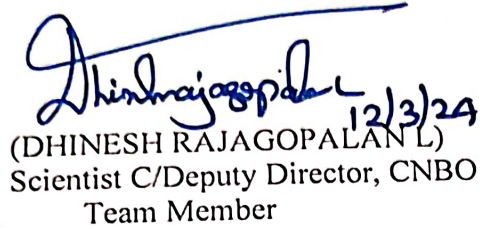 Dhinrajagopalan L
12/3/24
(DHINESH RAJAGOPALAN L)
Scientist C/Deputy Director, CNBO
Team Member